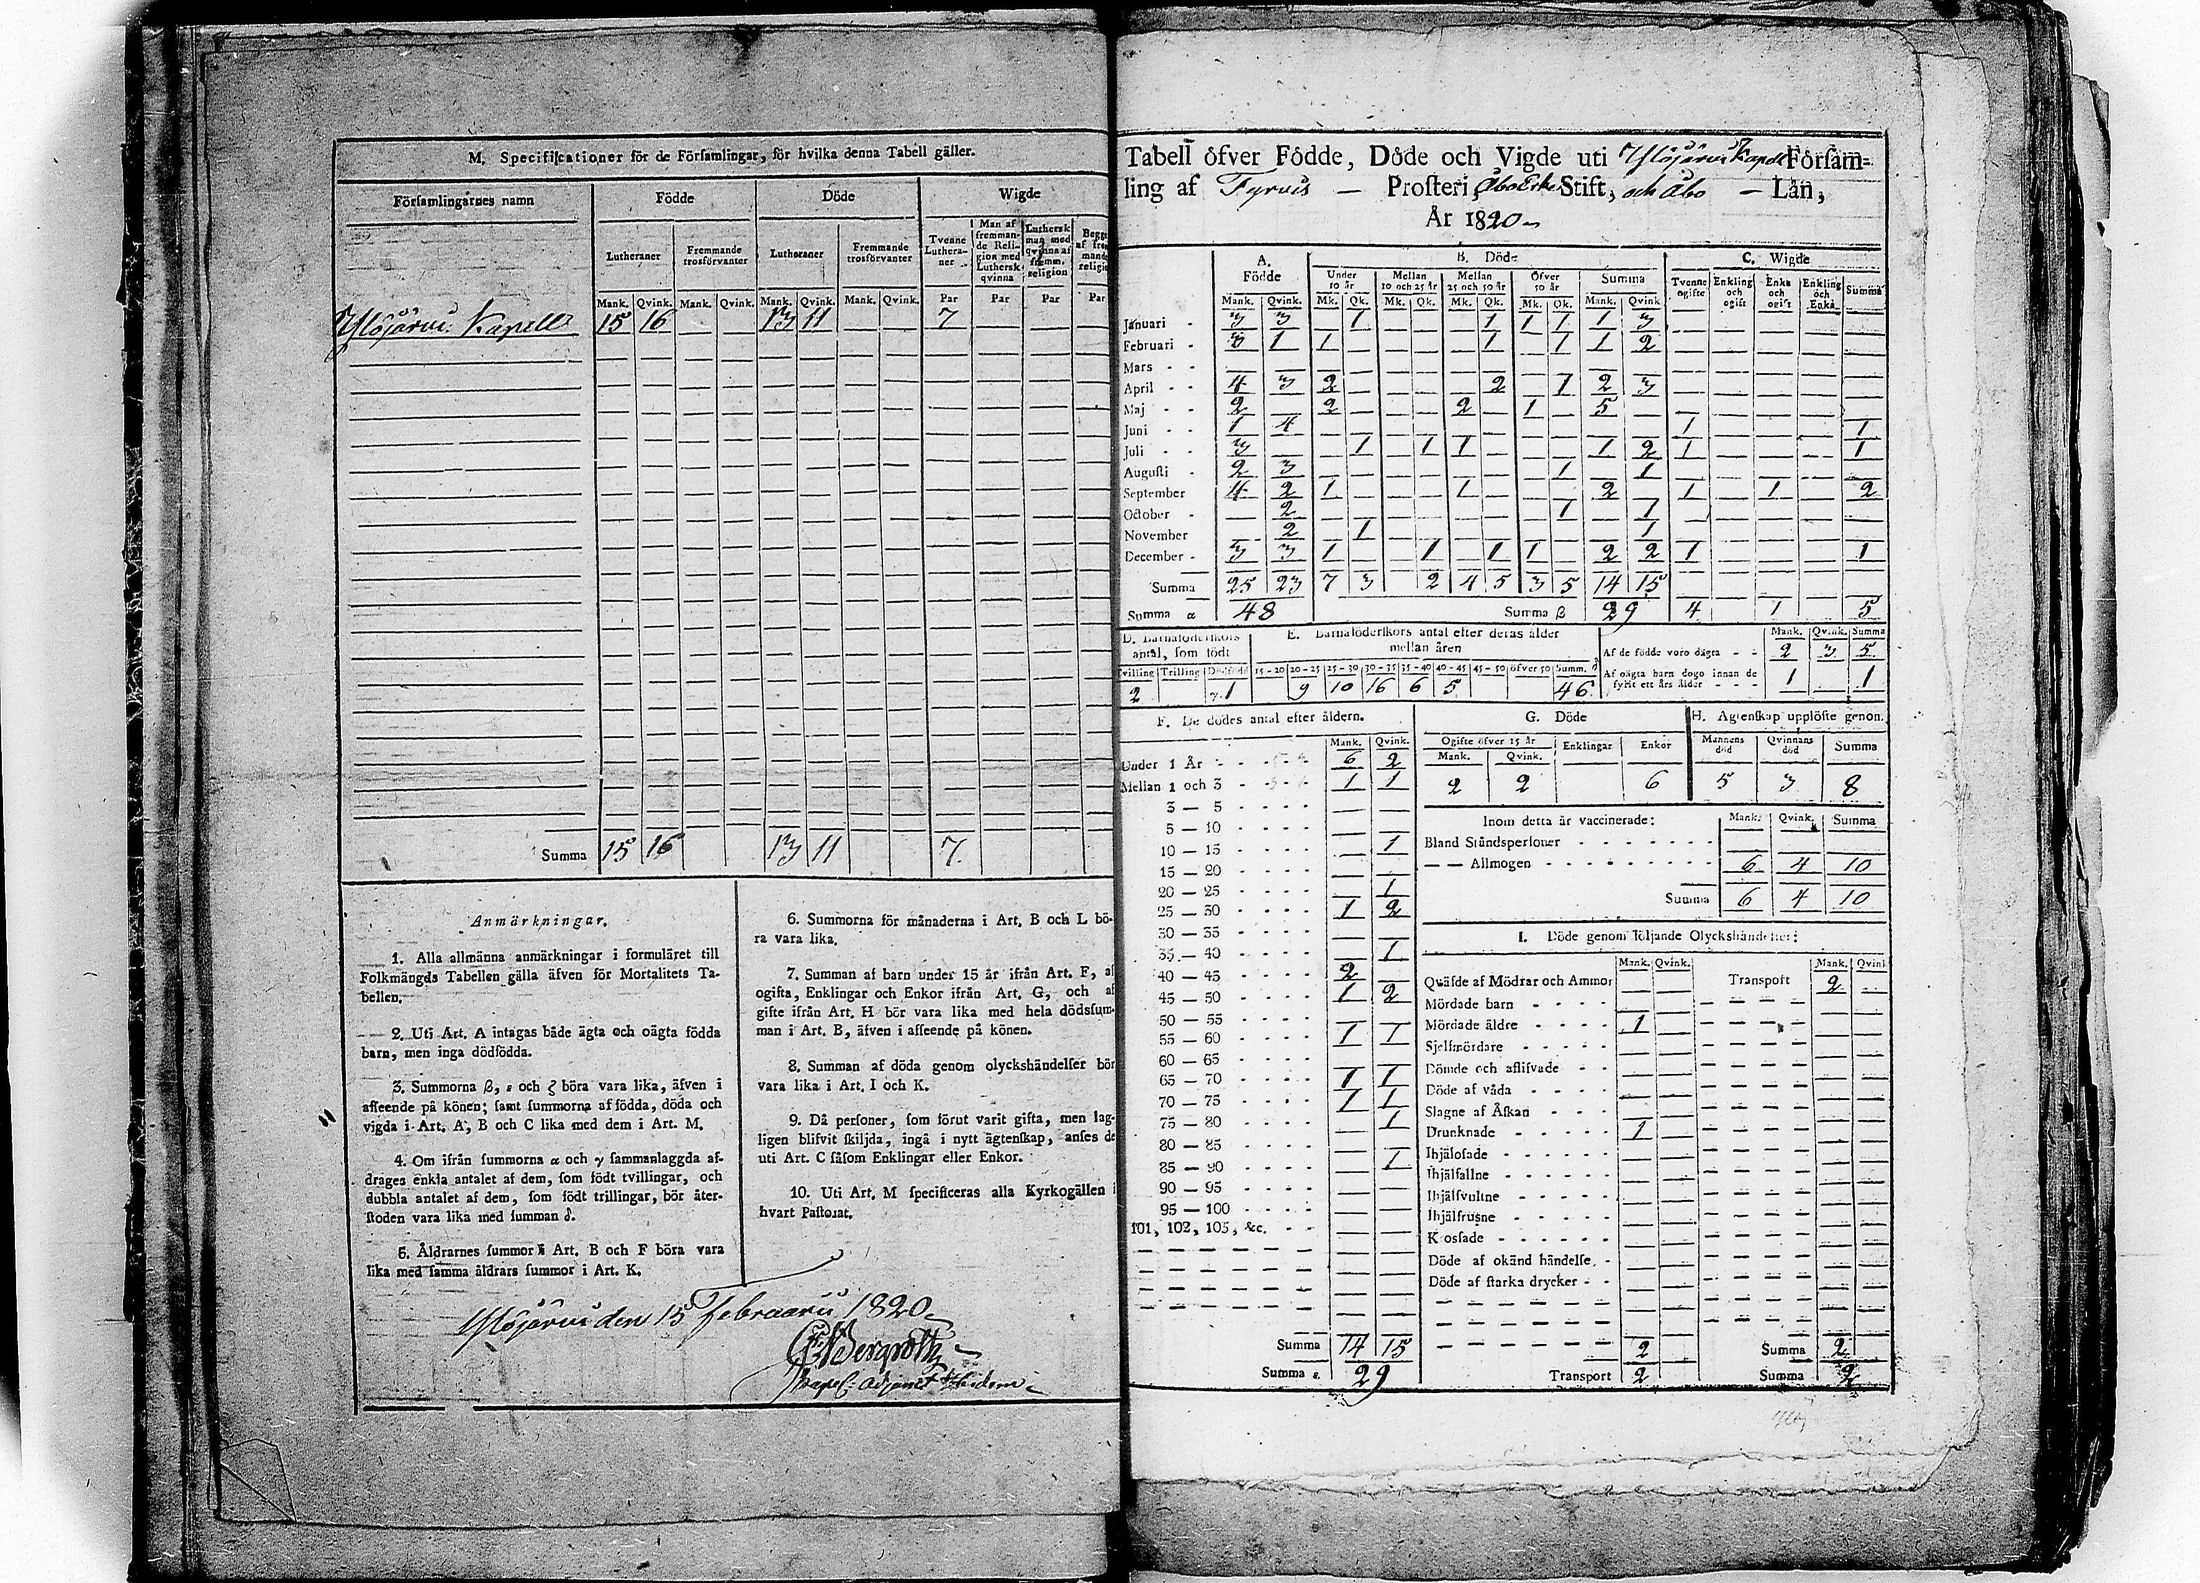 M. Specificationer för de Församlingar, för hvilka denna Tabell gäller.
Församlingarnes namn Födde Döde Wigde
Lutheraner Fremmande trosförvanter Lutheraner Fremmande trosförvanter Tvenne Lutheraner Man af fremmande Religion med Luthersk qvinna Luthersk man med qvinna af fremm. religion
Mank. Qvink. Mank. Qvink. Mank. Qvink. Mank. Qvink. Par Par Par Par
Ylöjärvi Kapell 15 16 — — 13 11 — — 7 — — —
Summa 15 16 13 11 7
Anmärkningar.
1. Alla allmänna anmärkningar i formuläret till
Folkmängds Tabellen gälla äfven för Mortalitets Ta-
bellen.
2. Uti Art. A intagas både ägta och oägta födda
barn, men inga dödfödda.
3. Summorna β, ε och ζ böra vara lika, äfven i
afseende på könen; samt summorna af födda, döda och
vigda i Art. A, B och C lika med dem i Art. M.
4. Om ifrån summorna α och γ sammanlaggda af-
drages enkla antalet af dem, som födt tvillingar, och
dubbla antalet af dem, som födt trillingar, bör åter-
stoden vara lika med summan δ.
5. Åldrarnes summor i Art. B och F böra vara
lika med samma åldrars summor i Art. K.
6. Summorna för månaderna i Art. B och L bö-
ra vara lika.
7. Summan af barn under 15 år ifrån Art. F, af
ogifta, Enklingar och Enkor ifrån Art. G, och af
gifte ifrån Art. H bör vara lika med hela dödssum-
man i Art. B, äfven i afseende på könen.
8. Summan af döda genom olyckshändelser bör
vara lika i Art. I och K.
9. Då personer, som förut varit gifta, men lag-
ligen blifvit skiljda, ingå i nytt ägtenskap, anses de
uti Art. C såsom Enklingar eller Enkor.
10. Uti Art. M specificeras alla Kyrkogällen i
hvart Pastorat.
Ylöjärvi den 15 Februarii 1820
Tabell öfver Födde, Döde och Vigde uti Ylöjärvi Kapell Försam-
ling af Tyrvis — Prosteri, Åbo Erke Stift, och Åbo — Län,
År 1820
A. Födde B. Döde C. Wigde
Under 10 år Mellan 10 och 25 år Mellan 25 och 50 år Öfver 50 år Summa Tvenne ogifte Enkling och ogift Enka och ogift Enkling och Enka Summa
Mank. Qvink. Mk. Qk. Mk. Qk. Mk. Qk. Mk. Qk. Mank. Qvink
Januari 3 3 — 1 — — — 1 1 1 1 3 — — — — —
Februari 3 1 1 — — — — 1 — 1 1 2 — — — — —
Mars — — — — — — — — — — — — — — — — —
April 4 3 2 — — — — 2 — 1 2 3 — — — — —
Maj 2 — 2 — — — 2 — 1 — 5 — — — — — —
Juni 1 4 — — — — — — — — — — 1 — — — 1
Juli 3 — — 1 — 1 1 — — — 1 2 1 — — — 1
Augusti 2 3 — — — — — — — 1 — 1 — — — — —
September 4 2 1 — — — 1 — — — 2 — 1 — 1 — 2
October — 2 — — — — — — — 1 — 1 — — — — —
November — 2 — 1 — — — — — — — 1 — — — — —
December 3 3 1 — — 1 — 1 1 — 2 2 1 — — — 1
Summa 25 23 7 3 2 4 5 3 5 14 15
Summa α 48 Summa β 29 4 1 5
D. Barnaföderskors antal, som födt
Tvilling Trilling Dödfödd
2 γ. 1
E. Barnaföderskors antal efter deras ålder
mellan åren
15-20 20-25 25-30 30-35 35-40 40-45 45-50 öfver 50 Summ. δ
9 10 16 6 5 46
Mank. Qvink. Summa
Af de födde voro oägta 2 3 5
Af oägta barn dogo innan de
fyllt ett års ålder 1 1
F. De dödes antal efter åldern.
Mank. Qvink.
Under 1 År 6 2
Mellan 1 och 3 1 1
3 — 5 — —
5 — 10 — —
10 — 15 — 1
15 — 20 — —
20 — 25 — 1
25 — 30 1 2
30 — 35 — —
35 — 40 — 1
40 — 45 2 —
45 — 50 1 2
50 — 55 — —
55 — 60 1 1
60 — 65 — —
65 — 70 1 1
70 — 75 1 1
75 — 80 — 1
80 — 85 — —
85 — 90 — 1
90 — 95 — —
95 — 100 — —
101, 102, 105, &c.
Summa 14 15
Summa ε. 29
G. Döde
Ogifte öfver 15 år Enklingar Enkor
Mank. Qvink.
2 2 6
H. Ägtenskap upplöste genom
Mannens död Qvinnans död Summa
5 3 8
Inom detta år vaccinerade: Mank. Qvink. Summa
Bland Ståndspersoner
— — Allmogen 6 4 10
Summa 6 4 10
I. Döde genom följande Olyckshändelser:
Mank. Qvink. Mank. Qvink
Quäfde af Mödrar och Ammor — — Transport 2 —
Mördade barn — —
Mördade äldre 1 —
Sjelfmördare — —
Dömde och aflifvade — —
Döde af våda — —
Slagne af Åskan — —
Drunknade 1 —
Ihjälosade — —
Ihjälfallne — —
Ihjälsvultne — —
Ihjälfrusne — —
Krossade — —
Döde af okänd händelse — —
Döde af starka drycker — —
2 Summa 2
Transport 2 Summa 2